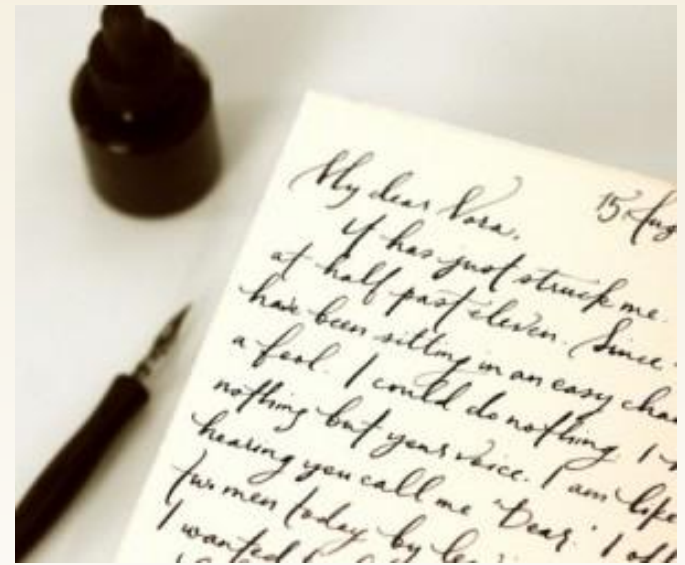 My dear Nora. 15 Aug
It has just struck me.
at half past eleven. Since
have been sitting in an easy chai
a fool. I could do nothing. I
nothing but your voice. I am like
hearing you call me 'Dear.' I off
two men today by
I wanted